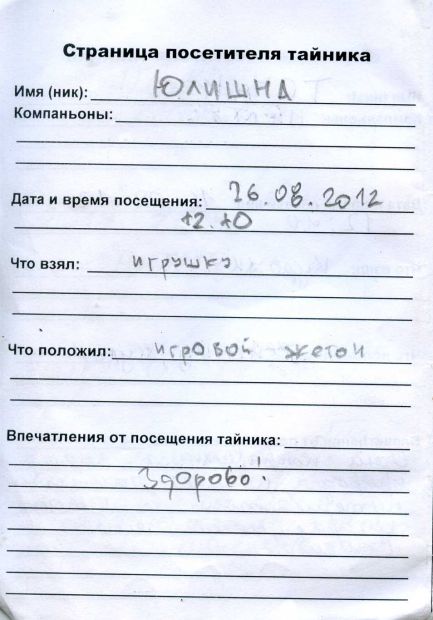 Страница посетителя тайника
Имя (ник): ЮЛИШНА
Компаньоны:
Дата и время посещения: 26.08.2012
12.10
Что взял: игрушку
Что положил: игровой жетон
Впечатления от посещения тайника:
Здорово!